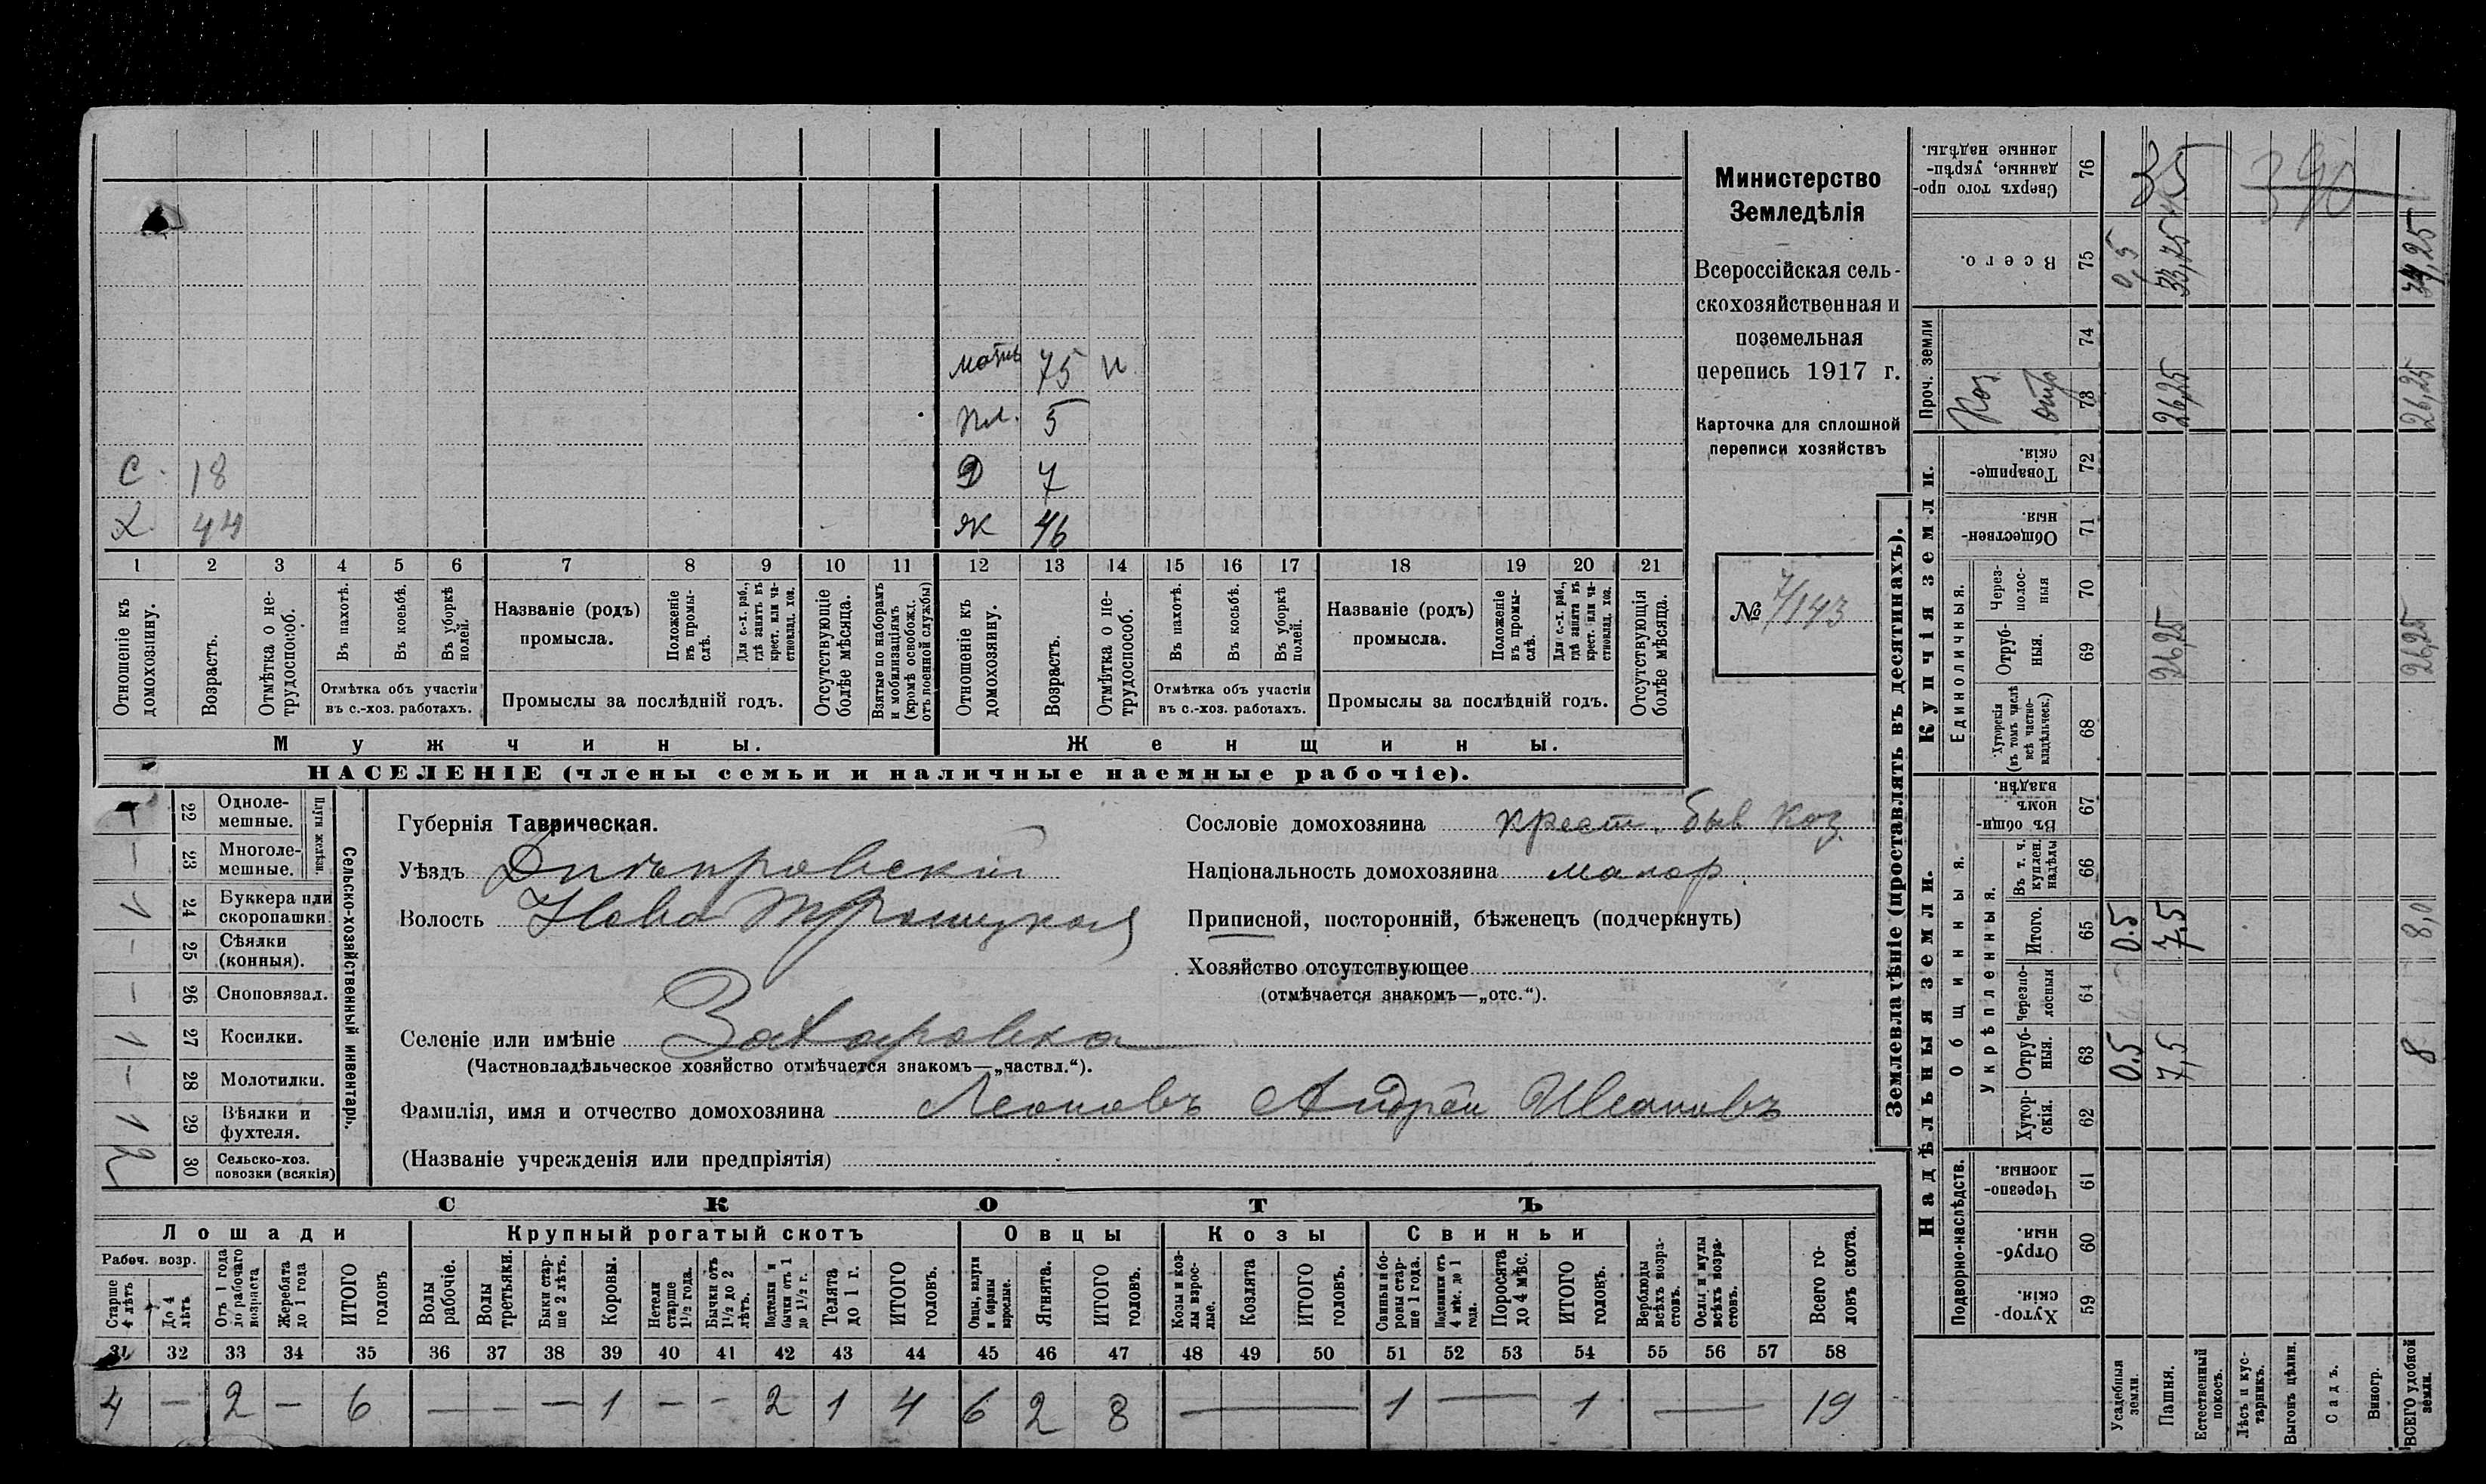 Министерство
Земледѣлія
Всероссійская сель-
скохозяйственная и
поземельная
перепись 1917 г.
Карточка для сплошной
переписи хозяйствъ
№ 7/143
мать 75 н
пл. 5
С 18 Д 7
Х 44 Ж 46
1 2 3 4 5 6 7 8 9 10 11 12 13 14 15 16 17 18 19 20 21
Отношеніе къ домохозяину.
Возрастъ.
Отмѣтка о не-трудоспособ.
Въ пахотѣ.
Въ косьбѣ.
Въ уборкѣ полей.
Отмѣтка объ участіи
въ с.-хоз. работахъ.
Названіе (родъ)
промысла.
Положеніе въ промы-слѣ.
Для с.-х. раб., гдѣ занятъ въ крест. или ча-стновлад. хоз.
Промыслы за послѣдній годъ.
Отсутствующіе болѣе мѣсяца.
Взятые по наборамъ и мобилизаціямъ (кромѣ освобожд. отъ военной службы)
Отношеніе къ домохозяину.
Возрастъ.
Отмѣтка о не-трудоспособ.
Въ пахотѣ.
Въ косьбѣ.
Въ уборкѣ полей.
Отмѣтка объ участіи
въ с.-хоз. работахъ.
Названіе (родъ)
промысла.
Положеніе въ промы-слѣ.
Для с.-х. раб., гдѣ занята въ крест. или ча-стновлад. хоз.
Промыслы за послѣдній годъ.
Отсутствующія болѣе мѣсяца.
Мужчины.
Женщины.
НАСЕЛЕНІЕ (члены семьи и наличные наемные рабочіе).
Сельско-хозяйственный инвентарь.
Плуги желѣзн.
22 Одноле-мешные. 1
23 Многоле-мешные. —
24 Буккера или скоропашки 1
25 Сѣялки (конныя). —
26 Сноповязал. —
27 Косилки. 1
28 Молотилки. —
29 Вѣялки и фухтеля. 1
30 Сельско-хоз. повозки (всякія) 2
Губернія Таврическая.
Уѣздъ Днѣпровскій
Волость Ново Троицкая
Сословіе домохозяина крест. быв каз.
Національность домохозяина малор.
Приписной, посторонній, бѣженецъ (подчеркнуть)
Хозяйство отсутствующее
(отмѣчается знакомъ—„отс.“).
Селеніе или имѣніе Захаровка
(Частновладѣльческое хозяйство отмѣчается знакомъ—„частвл.“).
Фамилія, имя и отчество домохозяина Леоновъ Андрей Ивановъ
(Названіе учрежденія или предпріятія)
СКОТЪ
Лошади
Крупный рогатый скотъ
Овцы
Козы
Свиньи
Рабоч. возр.
Старше 4 лѣтъ
До 4 лѣтъ
Отъ 1 года до рабочаго возраста
Жеребята до 1 года
ИТОГО головъ
Волы рабочіе.
Волы третьяки.
Быки стар-ше 2 лѣтъ.
Коровы.
Нетели старше 1½ года.
Бычки отъ 1½ до 2 лѣтъ.
Подтелки и бычки отъ 1 до 1½ г.
Телята до 1 г.
ИТОГО головъ.
Овцы, валухи и бараны взрослые.
Ягнята.
ИТОГО головъ.
Козы и коз-лы взрос-лые.
Козлята
ИТОГО головъ.
Свиньи и бо-ровы стар-ше 1 года.
Подсвинки отъ 4 мѣс. до 1 года.
Поросята до 4 мѣс.
ИТОГО головъ.
Верблюды всѣхъ возра-стовъ.
Ослы и мулы всѣхъ возра-стовъ.
Всего го-ловъ скота.
31 32 33 34 35 36 37 38 39 40 41 42 43 44 45 46 47 48 49 50 51 52 53 54 55 56 57 58
4 — 2 — 6 — — — 1 — — 2 1 4 6 2 8 — 1 — 1 — 19
Землевладѣніе (проставлять въ десятинахъ).
Надѣльныя земли.
Купчія земли.
Проч. земли
Подворно-наслѣдств.
Общинныя.
Укрѣпленныя.
Единоличныя.
59 Хутор-скія.
60 Отруб-ныя.
61 Черезпо-лосныя.
62 Хутор-скія.
63 Отруб-ныя. 0.5 7,5 8
64 Черезпо-лосныя
65 Итого. 0.5 7,5 8,0
66 Въ т. ч. куплен. надѣлы
67 Въ общин-номъ владѣн.
68 Хуторскія (въ томъ числѣ всѣ частно-владѣльческ.)
69 Отруб-ныя. 26,25 26,25
70 Через-полос-ныя
71 Обществен-ныя.
72 Товарище-скія.
73 Каз. отр 26,25 26,25
74
75 Всего. 0,5 33,75 34,25
76 Сверхъ того про-данные, укрѣп-ленные надѣлы.
35
390
Усадебныя земли.
Пашня.
Естественный покосъ.
Лѣсъ и кус-тарникъ.
Выгонъ цѣлин.
Садъ.
Виногр.
ВСЕГО удобной земли.